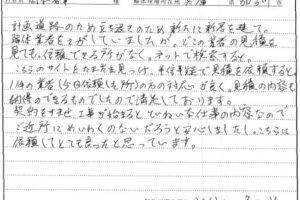 計画道路のため立ち退きのため新たに新居を建て。
解体業者をさがしていましたが、どこの業者の見積を
見ても、信頼できる所がなく。ネットで検索すると。
こちらのサイトをたまたま見つけ、半信半疑で見積を依頼すると
1件の業者(今日依頼した所)の方の対応が良く。見積の内容も
納得のできるものでしたので満足しております。
契約をすませ、工事が始まるとていねいな仕事の内容なので
ご近所にめいわくのないだろうと安心しましたし。こちらに
依頼してとても良かったと思っています。